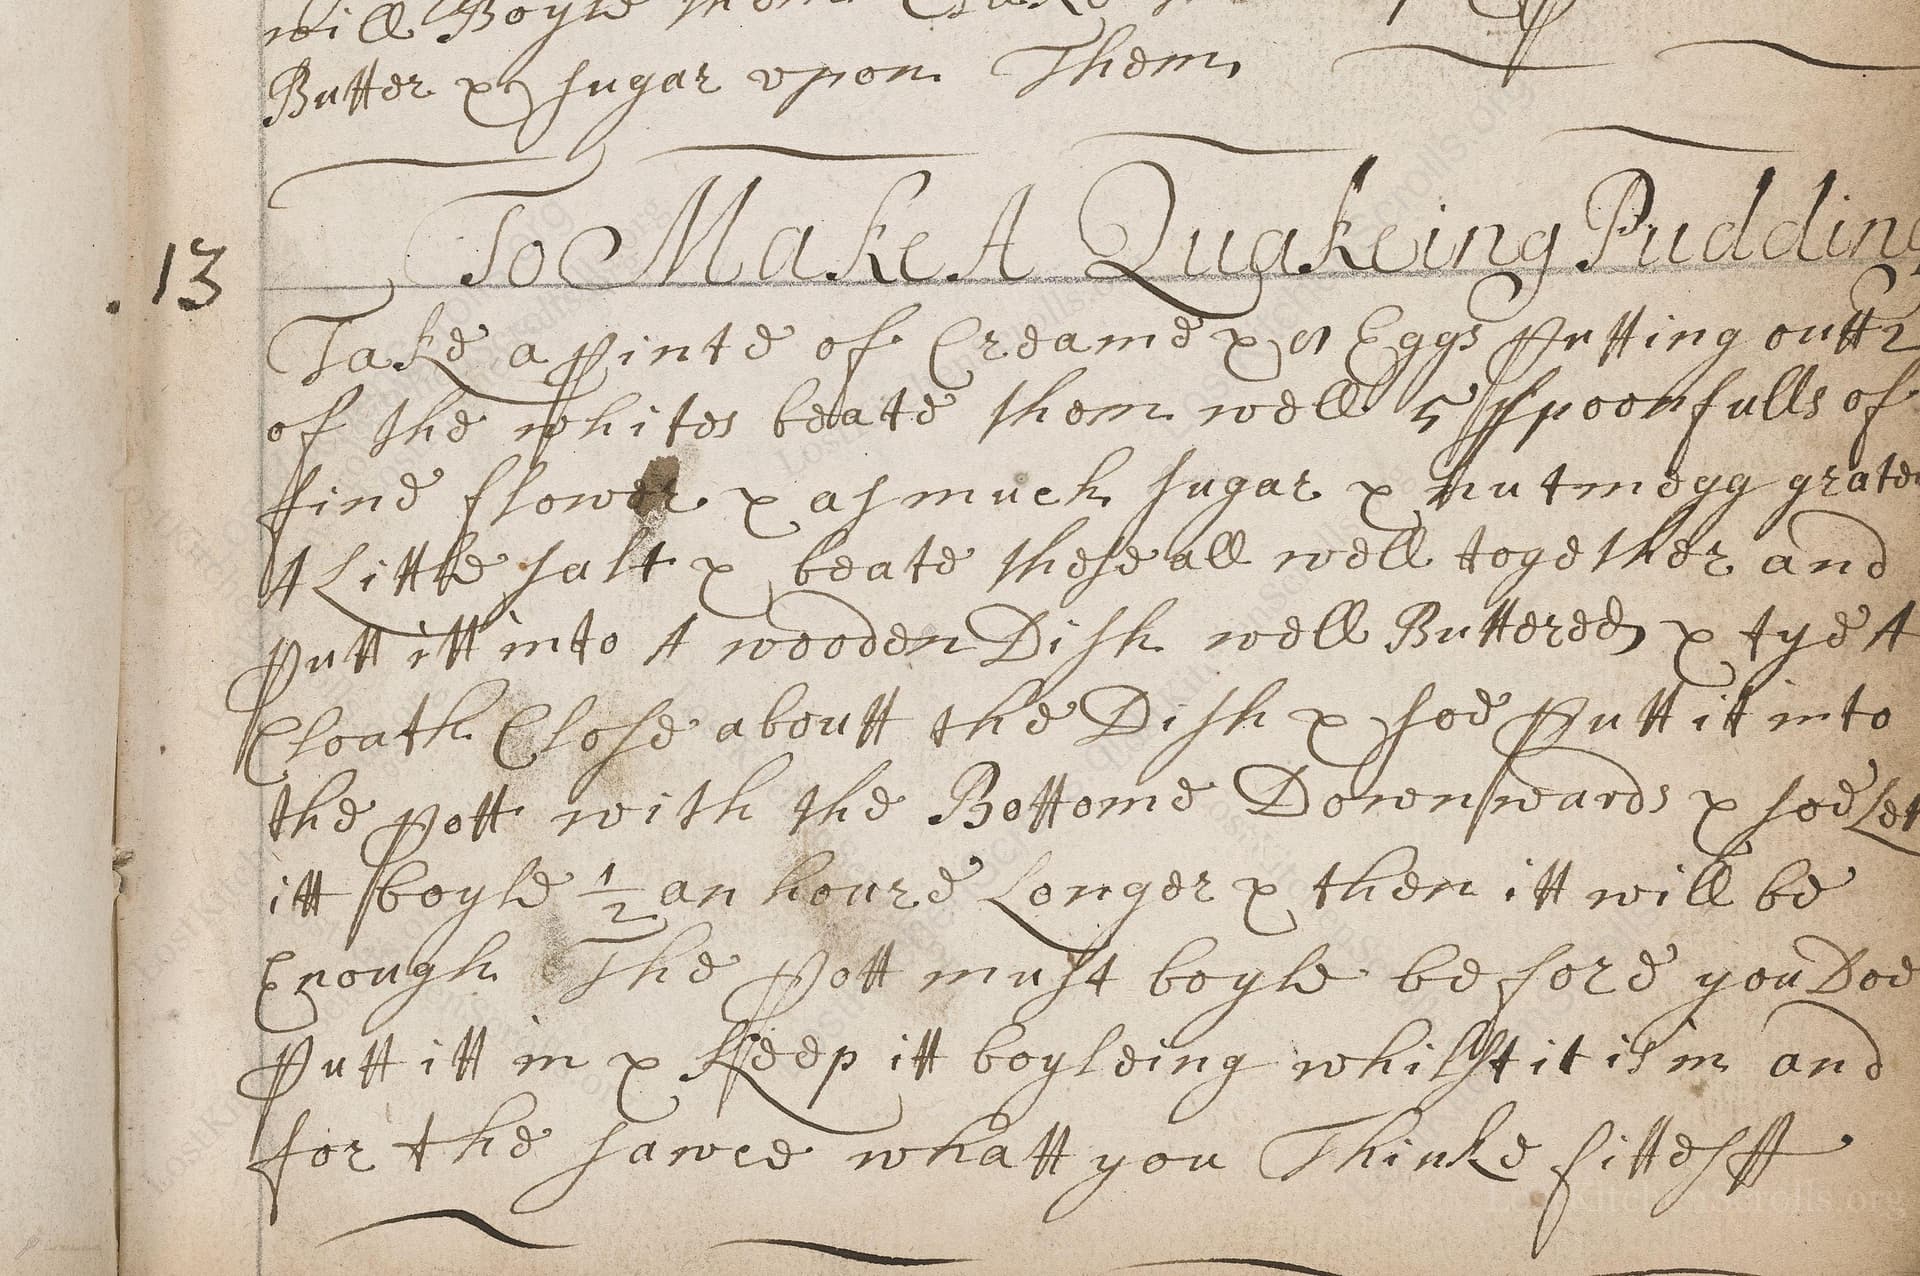 will Boyle them
Butter & sugar upon Them
13 To Make A Quakeing Pudding
Take a pinte of Creame & Eggs putting outt 2
of the whites beate them well 5 spoonfulls of
fine flower & as much sugar & nutmegg grated
A Little salt & beate these all well together and
putt itt into A wooden Dish well Buttered & tye A
Cloath Close aboutt the Dish & soe putt it into
the pott with the Bottome Downwards & soe Let
itt boyle 1/2 an houre Longer & then itt will be
Enough The pott must boyle before you Doe
putt itt in & Keep itt boyleing whilst it is in and
for the sawce whatt you Thinke fittestt
LostKitchenScrolls.org